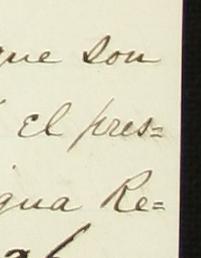 que son
el pres=
gua Re=